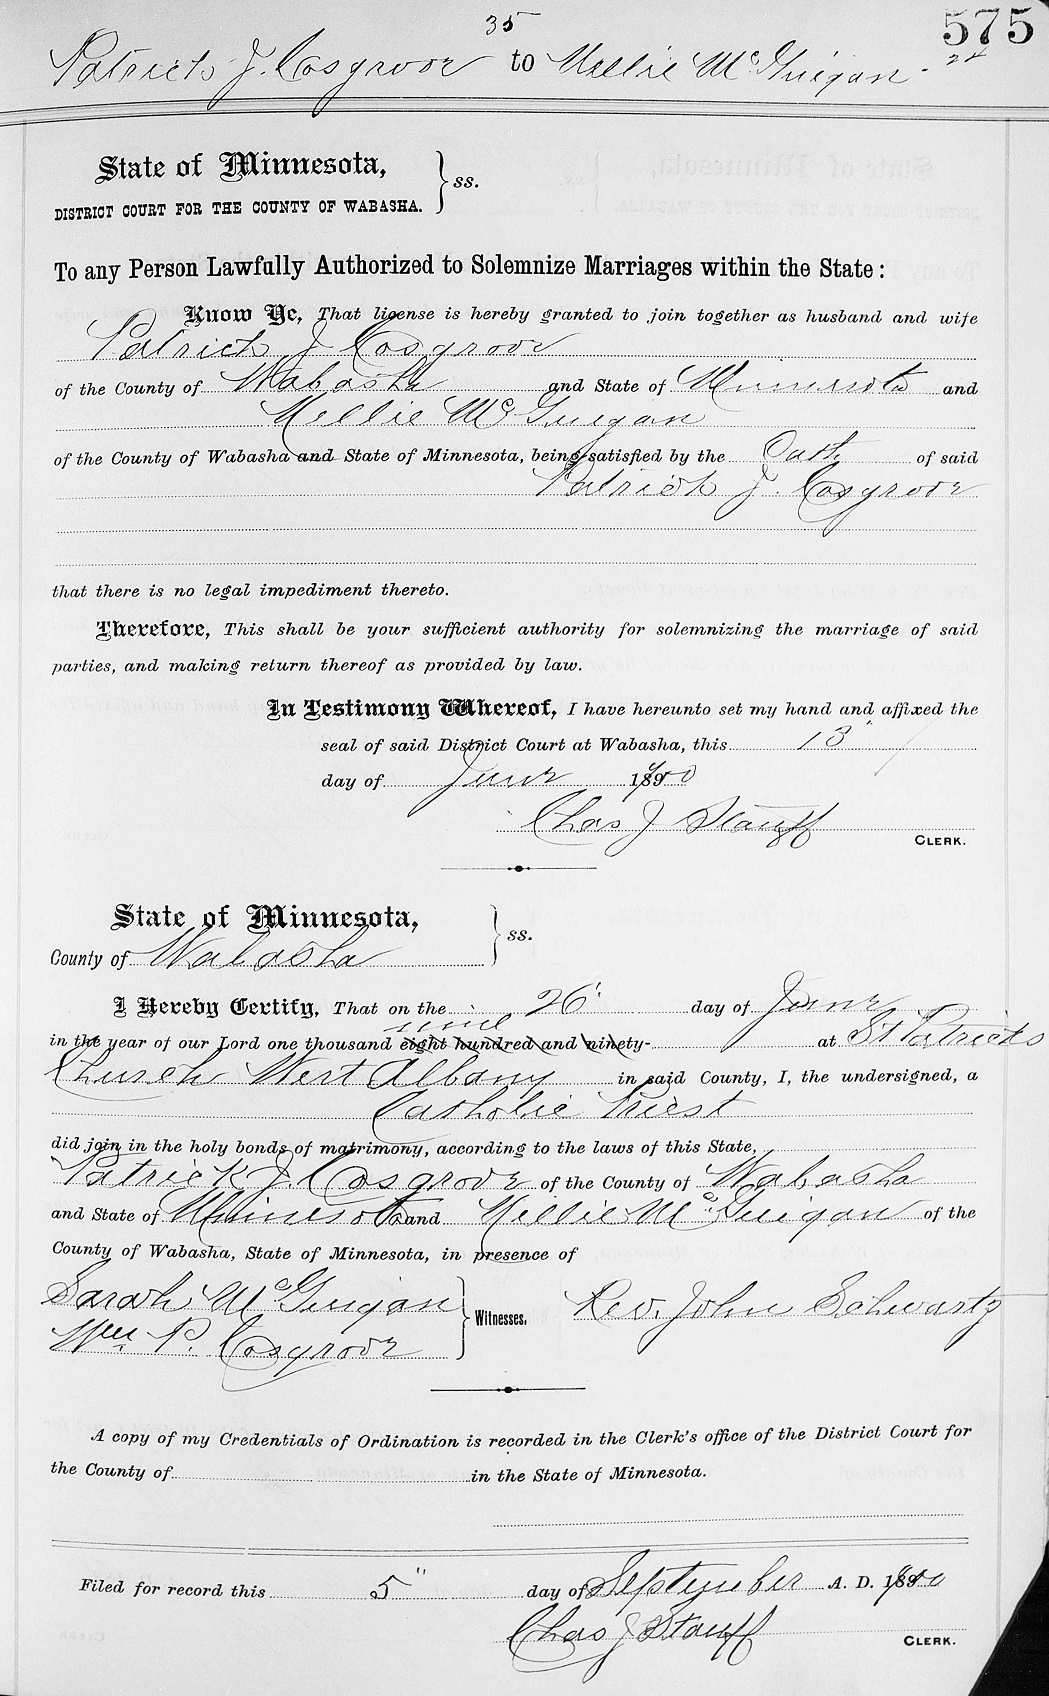 35
575
22
Patrick J. Cosgrove to Nellie McGuigan
State of Minnesota, } ss.
DISTRICT COURT FOR THE COUNTY OF WABASHA.
To any Person Lawfully Authorized to Solemnize Marriages within the State:
Know Ye, That license is hereby granted to join together as husband and wife
Patrick J Cosgrove
of the County of Wabasha and State of Minnesota and
Nellie McGuigan
of the County of Wabasha and State of Minnesota, being satisfied by the Oath of said
Patrick J. Cosgrove
that there is no legal impediment thereto.
Therefore, This shall be your sufficient authority for solemnizing the marriage of said
parties, and making return thereof as provided by law.
In Testimony Whereof, I have hereunto set my hand and affixed the
seal of said District Court at Wabasha, this 13"
day of June 1900
Chas J Stauff
CLERK.
State of Minnesota, } ss.
County of Wabasha
I Hereby Certify, That on the 26 day of June
nine
in the year of our Lord one thousand eight hundred and ninety- at St Patricks
Church West Albany in said County, I, the undersigned, a
Catholic Priest
did join in the holy bonds of matrimony, according to the laws of this State,
Patrick J. Cosgrove of the County of Wabasha
and State of Minnesota and Nellie McGuigan of the
County of Wabasha, State of Minnesota, in presence of
Sarah McGuigan
Wm P. Cosgrove } Witnesses. Rev. John Schwartz
A copy of my Credentials of Ordination is recorded in the Clerk's office of the District Court for
the County of in the State of Minnesota.
Filed for record this 5" day of September A. D. 1900
Chas J Stauff
CLERK.